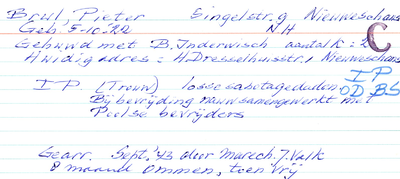 Brul, Pieter Singelstr. 9 Nieuweschans
Geb. 5-10-22 N.H.
Gehuwd met B. Inderwisch aantal k = 2 C
Huidig adres: H. Dresselhuisstr., Nieuweschans
I P (Trouw) losse sabotagedaden I P
OD BS
Bij bevrijding nauw samengewerkt met
Poolse bevrijders
Gearr. Sept. '43 door Marech. J. Valk
8 maand Ommen, toen vrij